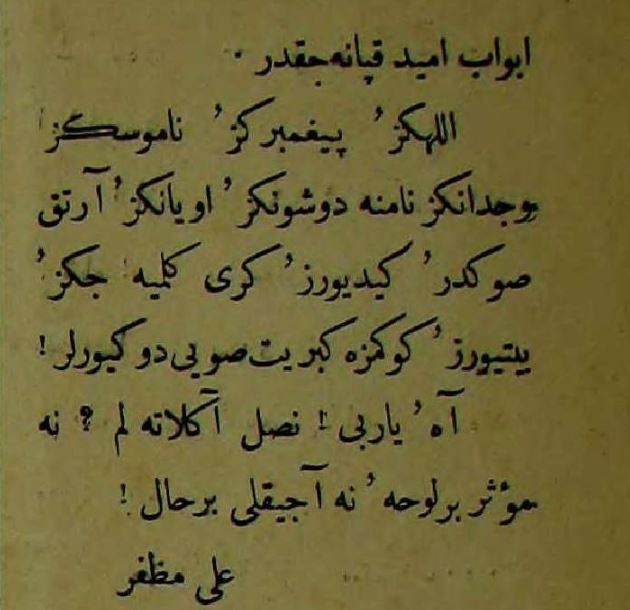 ابواب امید قپانه‌جقدر .
اللهكز٬ پیغمبركز٬ ناموسكز
وجدانكز نامنه دوشونكز٬ اویانكز٬ آرتق
صوكدر٬ كیدیورز٬ كری كلمیه جكز٬
بیتیورز٬ كوكمزه كبریت صویی دوكیورلر !
آه٬ یاربی ! نصل آكلاته لم ؟ نه
مؤثر برلوحه٬ نه آجیقلی برحال !
علی مظفر